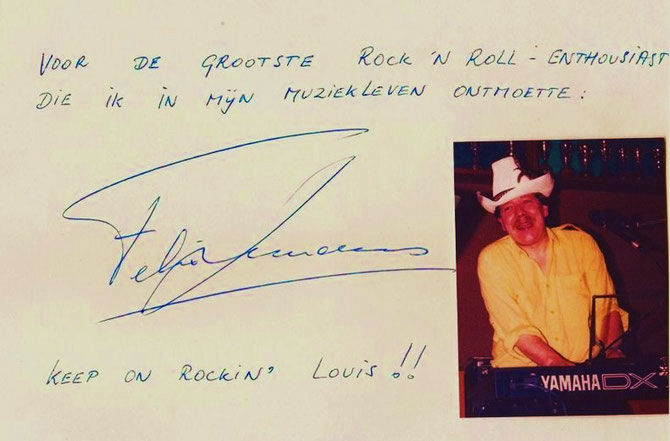 VOOR DE GROOTSTE ROCK 'N ROLL - ENTHOUSIAST
DIE IK IN MIJN MUZIEKLEVEN ONTMOETTE :
Felix
KEEP ON ROCKIN' LOUIS !!
YAMAHA DX